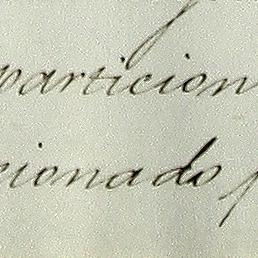 particion
cionado